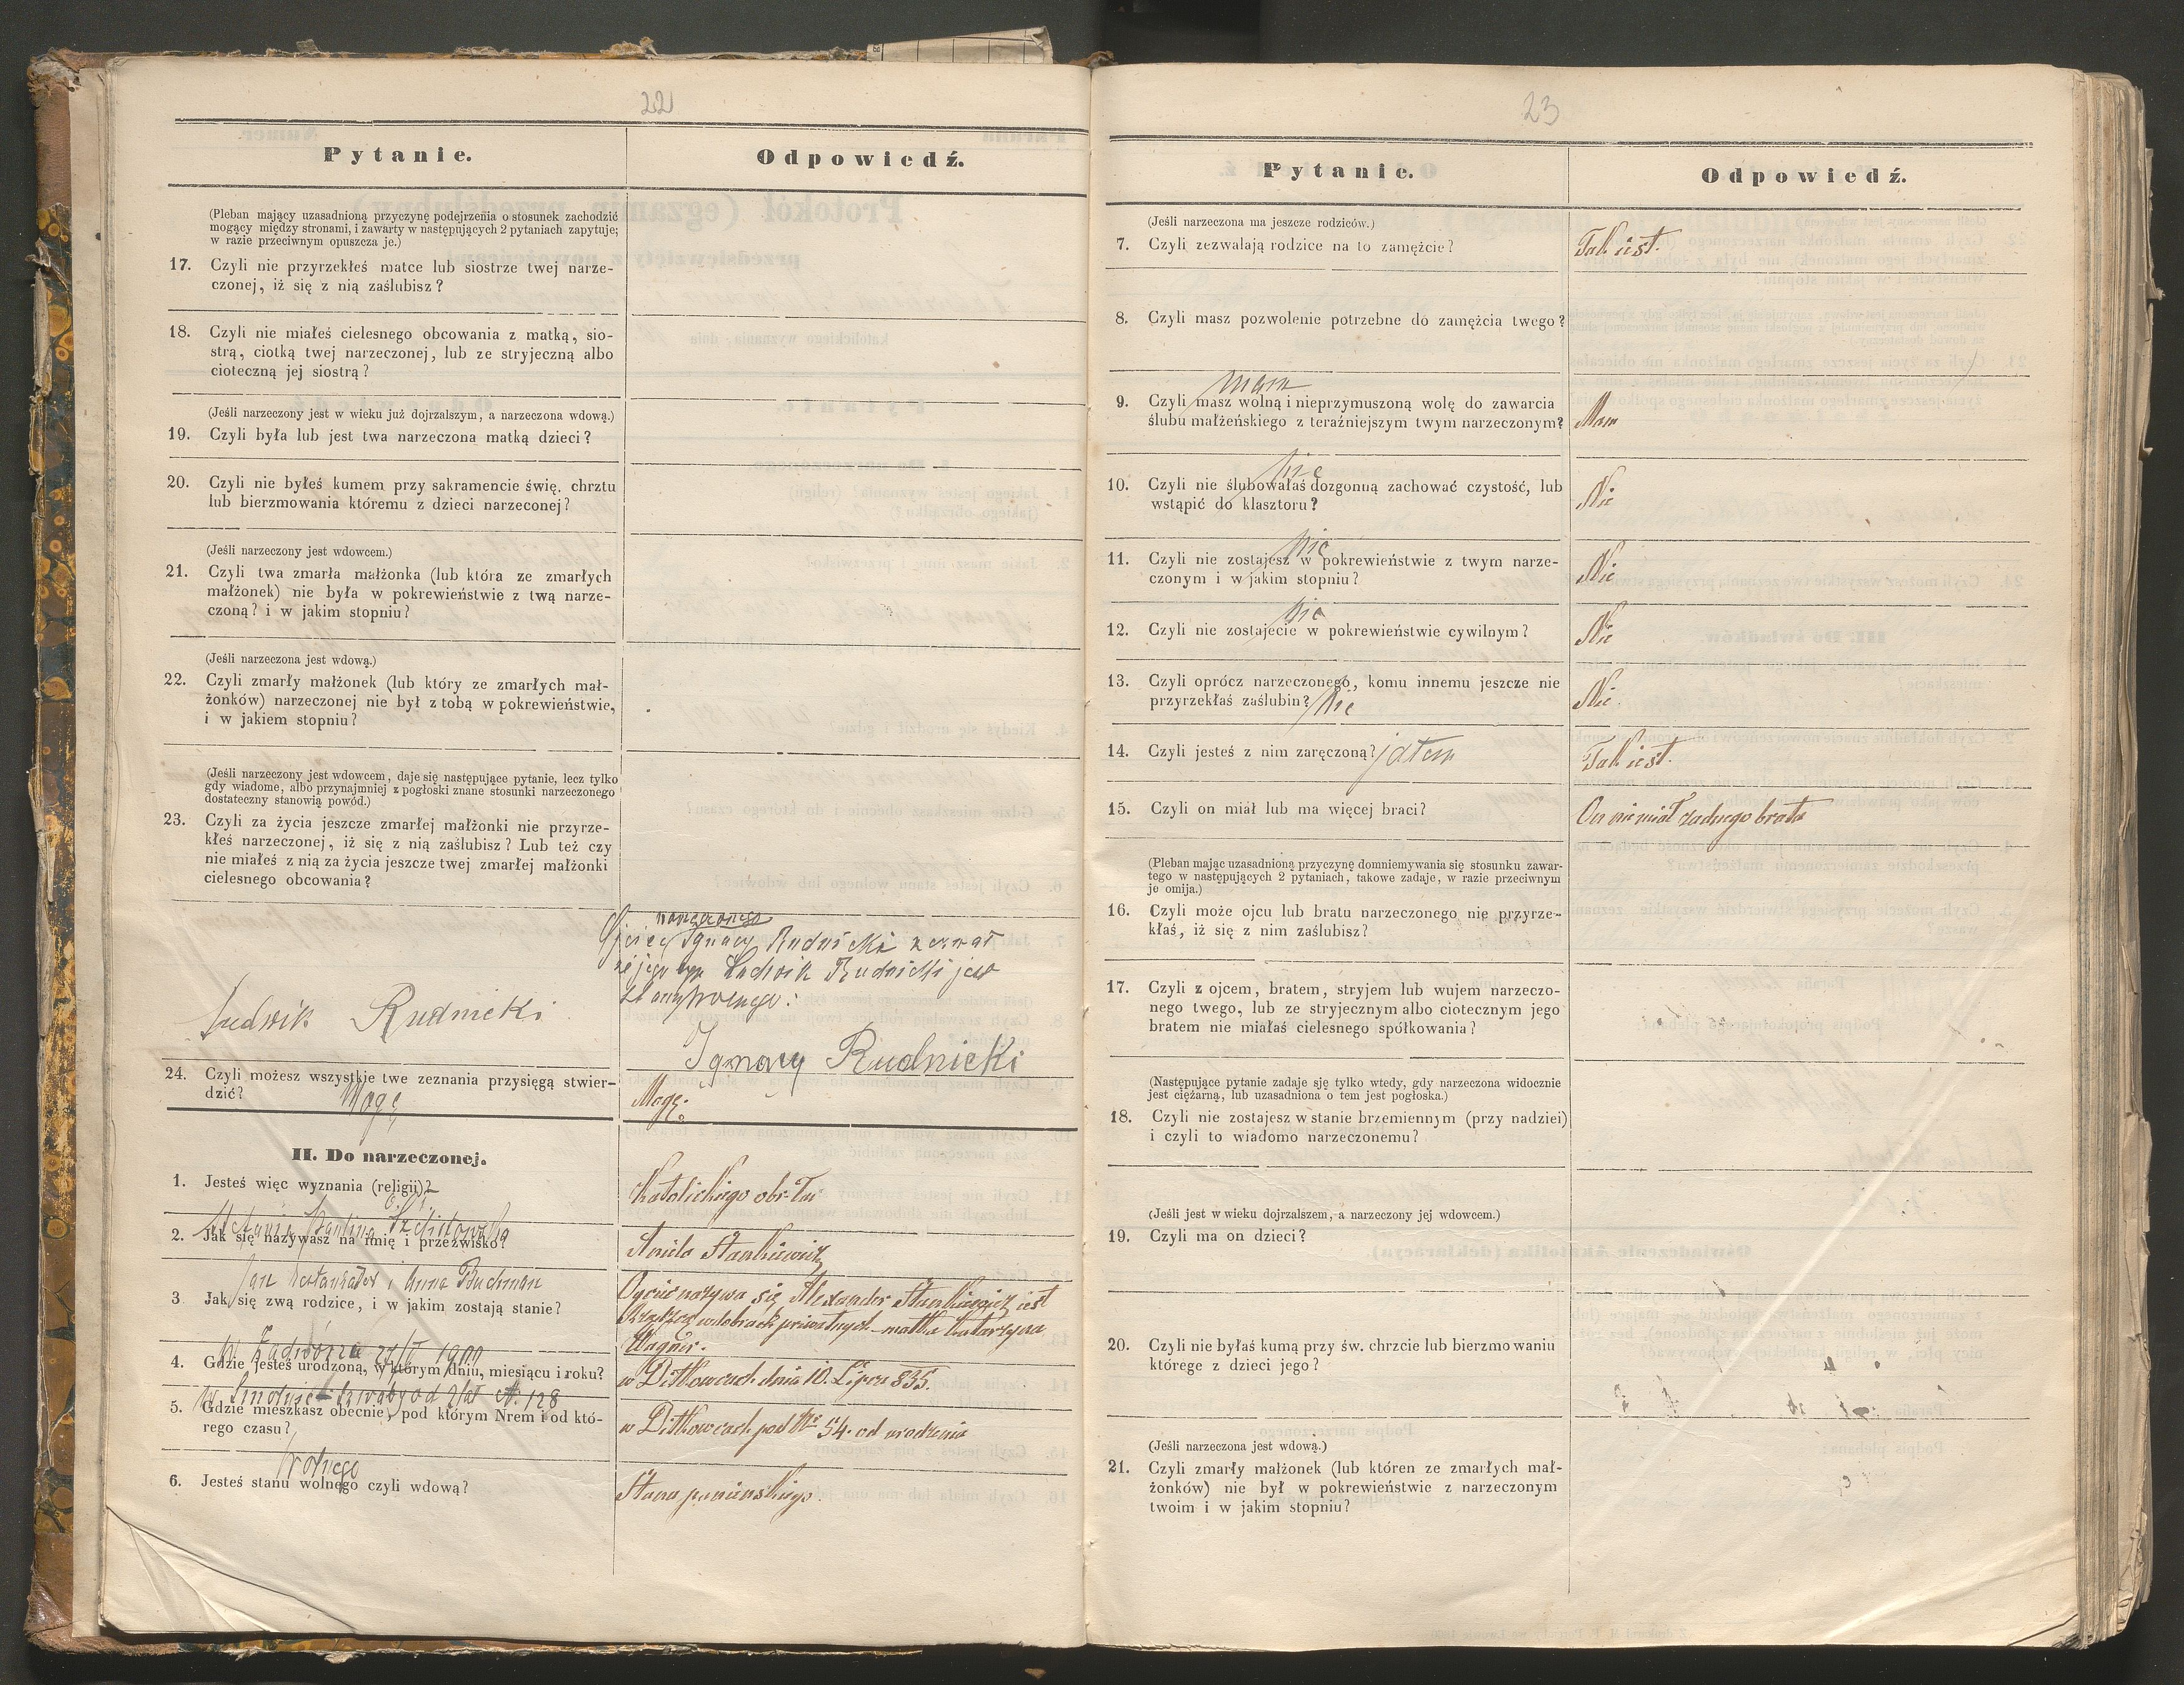 22
Pytanie.
Odpowiedź.
(Pleban mający uzasadnioną przyczynę podejrzenia o stosunek zachodzić
mogący między stronami, i zawarty w następujących 2 pytaniach zapytuje;
w razie przeciwnym opuszcza je.)
17. Czyli nie przyrzekłeś matce lub siostrze twej narze-
czonej, iż się z nią zaślubisz?
18. Czyli nie miałeś cielesnego obcowania z matką, sio-
strą, ciotką twej narzeczonej, lub ze stryjeczną albo
cioteczną jej siostrą?
(Jeśli narzeczony jest w wieku już dojrzalszym, a narzeczona wdową.)
19. Czyli była lub jest twa narzeczona matką dzieci?
20. Czyli nie byłeś kumem przy sakramencie świę. chrztu
lub bierzmowania któremu z dzieci narzeconej?
(Jeśli narzeczony jest wdowcem.)
21. Czyli twa zmarła małżonka (lub która ze zmarłych
małżonek) nie była w pokrewieństwie z twą narze-
czoną? i w jakim stopniu?
(Jeśli narzeczona jest wdową.)
22. Czyli zmarły małżonek (lub który ze zmarłych mał-
żonków) narzeczonej nie był z tobą w pokrewieństwie,
i w jakiem stopniu?
(Jeśli narzeczony jest wdowcem, daje się następujące pytanie, lecz tylko
gdy wiadome, albo przynajmniej z pogłoski znane stosunki narzeczonego
dostateczny stanowią powód.)
23. Czyli za życia jeszcze zmarłej małżonki nie przyrze-
kłeś narzeczonej, iż się z nią zaślubisz? Lub też czy
nie miałeś z nią za życia jeszcze twej zmarłej małżonki
cielesnego obcowania?
narzeczonego
Ojciec Ignacy Rudnicki zeznał
że jego syn Ludwik Rudnicki jest
stanu wolnego.
Ludwik Rudnicki
Ignacy Rudnicki
24. Czyli możesz wszystkie twe zeznania przysięgą stwier-
dzić?
Mogę
Mogę.
II. Do narzeczonej.
1. Jesteś więc wyznania (religii)?
Katolickiego obr. łac
2. Jak się nazywasz na imię i przezwisko?
Aniela Stankiewicz
Jan i Anna Buchman
3 Jak się zwą rodzice, i w jakim zostają stanie?
Ojciec nazywa się Alexander Stankiewicz jest
Rządzca w dobrach priwatnych – matka Katarzyna
Wagner.
1900
4. Gdzie jesteś urodzoną, w którym dniu, miesiącu i roku?
w Ditkowcach dnia 10. Lipca 835.
N. 128
5. Gdzie mieszkasz obecnie, pod którym Nrem i od któ-
rego czasu?
w Ditkowcach pod Nr 54. od urodzenia
wolnego
6. Jesteś stanu wolnego czyli wdową?
Stanu panieńskiego.
23
Pytanie.
Odpowiedź.
(Jeśli narzeczona ma jeszcze rodziców.)
7. Czyli zezwalają rodzice na to zamężcie?
Tak jest.
8. Czyli masz pozwolenie potrzebne do zamężcia twego?
mam
9. Czyli masz wolną i nieprzymuszoną wolę do zawarcia
ślubu małżeńskiego z teraźniejszym twym narzeczonym?
Mam
nie
10. Czyli nie ślubowałaś dozgonną zachować czystość, lub
wstąpić do klasztoru?
Nie
nie
11. Czyli nie zostajesz w pokrewieństwie z twym narze-
czonym i w jakim stopniu?
Nie
nie
12. Czyli nie zostajecie w pokrewieństwie cywilnym?
Nie
13. Czyli oprócz narzeczonego, komu innemu jeszcze nie
przyrzekłaś zaślubin? nie
Nie.
14. Czyli jesteś z nim zaręczoną? jestem
Tak jest.
15. Czyli on miał lub ma więcej braci?
On nie miał żadnego brata
(Pleban mając uzasadnioną przyczynę domniemywania się stosunku zawar-
tego w następujących 2 pytaniach, takowe zadaje, w razie przeciwnym
je omija.)
16. Czyli może ojcu lub bratu narzeczonego nie przyrze-
kłaś, iż się z nim zaślubisz?
17. Czyli z ojcem, bratem, stryjem lub wujem narzeczo-
nego twego, lub ze stryjecznym albo ciotecznym jego
bratem nie miałaś cielesnego spółkowania?
(Następujące pytanie zadaje się tylko wtedy, gdy narzeczona widocznie
jest ciężarną, lub uzasadniona o tem jest pogłoska.)
18. Czyli nie zostajesz w stanie brzemiennym (przy nadziei)
i czyli to wiadomo narzeczonemu?
(Jeśli jest w wieku dojrzalszem, a narzeczony jej wdowcem.)
19. Czyli ma on dzieci?
20. Czyli nie byłaś kumą przy św. chrzcie lub bierzmowaniu
którege z dzieci jego?
(Jeśli narzeczona jest wdową.)
21. Czyli zmarły małżonek (lub któren ze zmarłych mał-
żonków) nie był w pokrewieństwie z narzeczonym
twoim i w jakim stopniu?